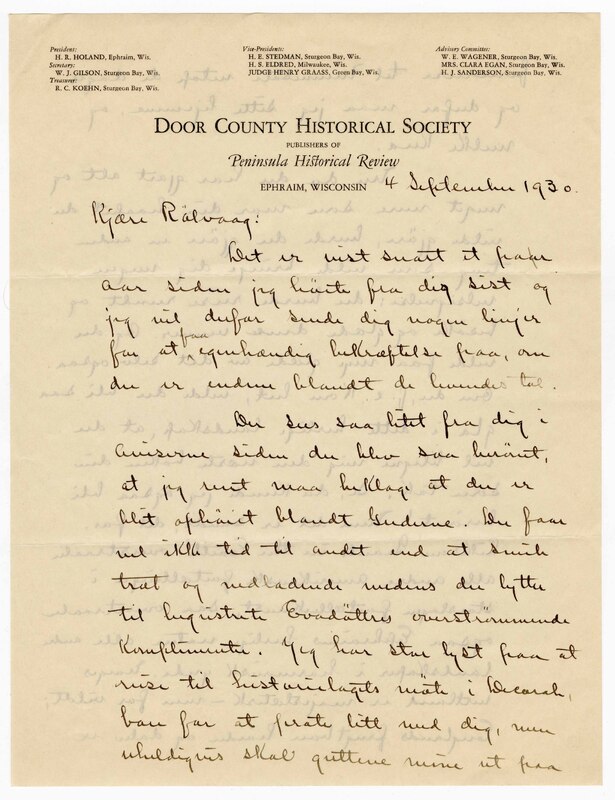 President:
H. R. HOLAND, Ephraim, Wis.
Secretary:
W. J. GILSON, Sturgeon Bay, Wis.
Treasurer:
R. C. KOEHN, Sturgeon Bay, Wis.
Vice-Presidents:
H. E. STEDMAN, Sturgeon Bay, Wis.
H. S. ELDRED, Milwaukee, Wis.
JUDGE HENRY GRAASS, Green Bay, Wis.
Advisory Committee:
W. E. WAGENER, Sturgeon Bay, Wis.
MRS. CLARA EGAN, Sturgeon Bay, Wis.
H. J. SANDERSON, Sturgeon Bay, Wis.
DOOR COUNTY HISTORICAL SOCIETY
PUBLISHERS OF
Peninsula Historical Review
EPHRAIM, WISCONSIN 4 September 1930.
Kjære Rälvaag:
Det er vist snart et par
aar siden jeg hörte fra dig sist og
jeg vil derfor sende dig nogen linjer
for at faa egenhændig bekræftelse paa, om
du er endnu blandt de levendes tal.
Der sees saa litet fra dig i
aviserne siden du blev saa berömt,
at jeg rent maa beklage at du er
blit ophöiet blandt Guderne. Du faar
vel ikke tid til andet end at smile
trat og nedladende medens du lytter
til begeistrete Evadöttres overströmmende
Komplimenter. Jeg har stor lyst paa at
reise til historielagets möte i Decorah,
bare for at prate litt med dig, men
uheldigvis skal guttene mine ut paa